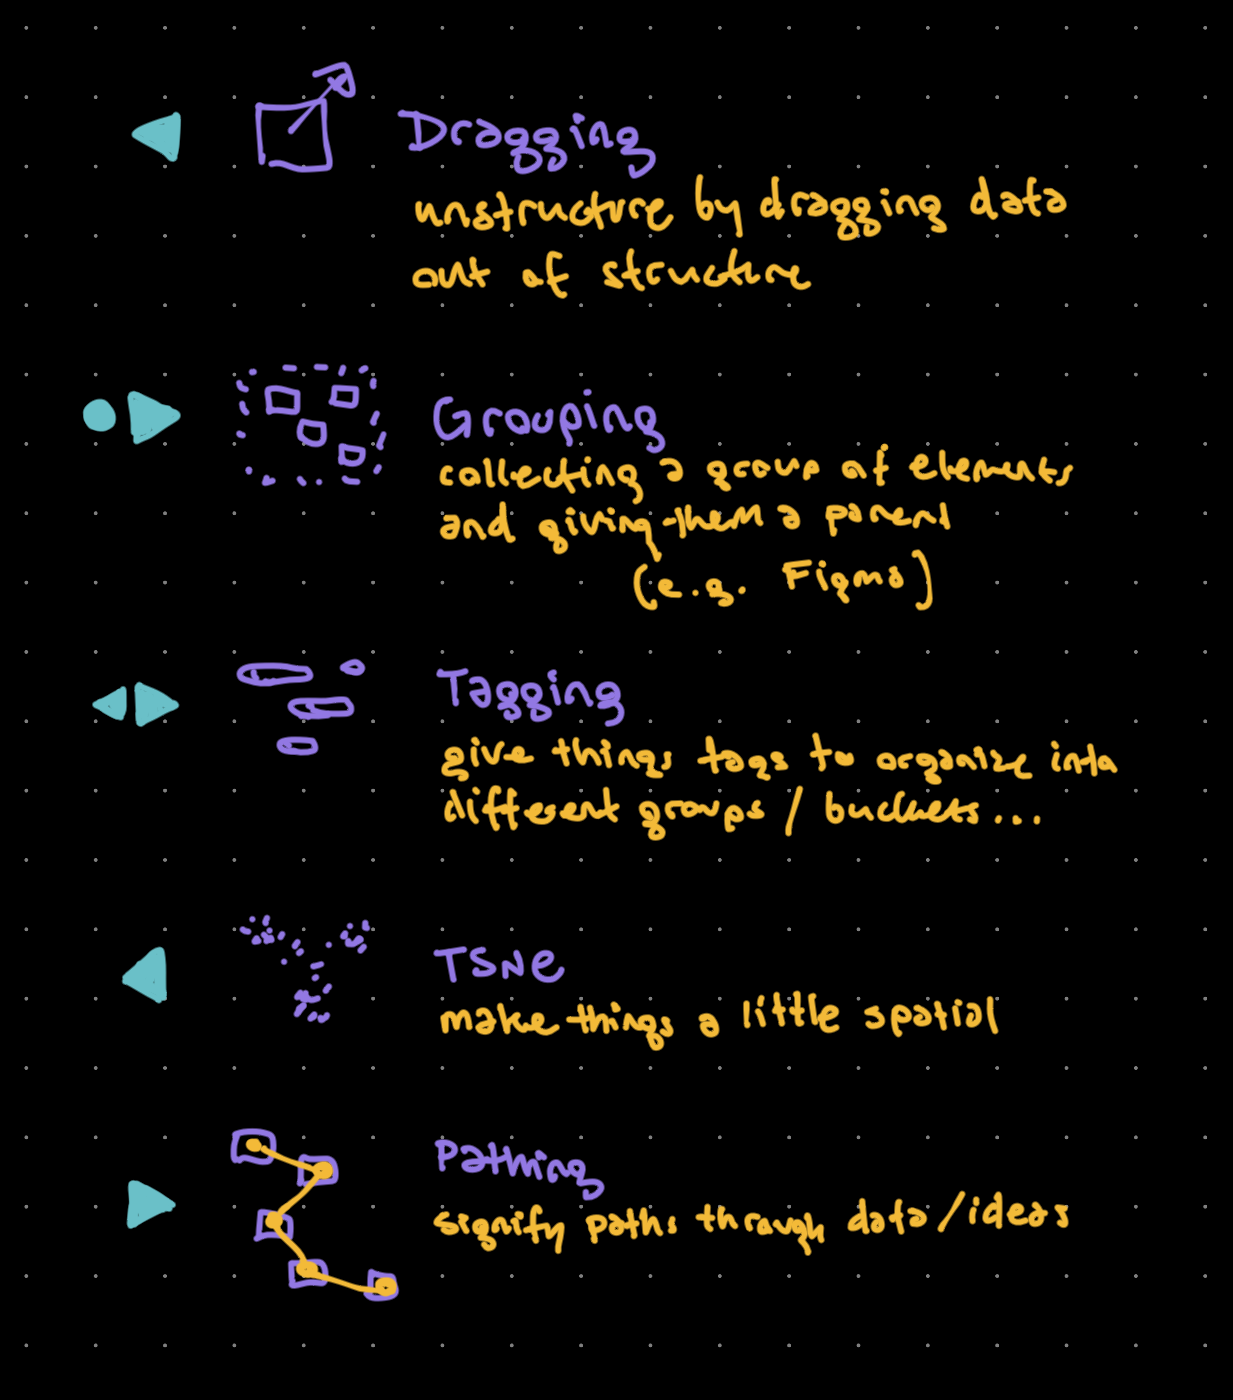 Dragging
unstructure by dragging data
out of structure
Grouping
collecting a group of elements
and giving them a parent
(e.g. Figma)
Tagging
give things tags to organize into
different groups / buckets...
TSNe
make things a little spatial
Pathing
signify paths through data/ideas